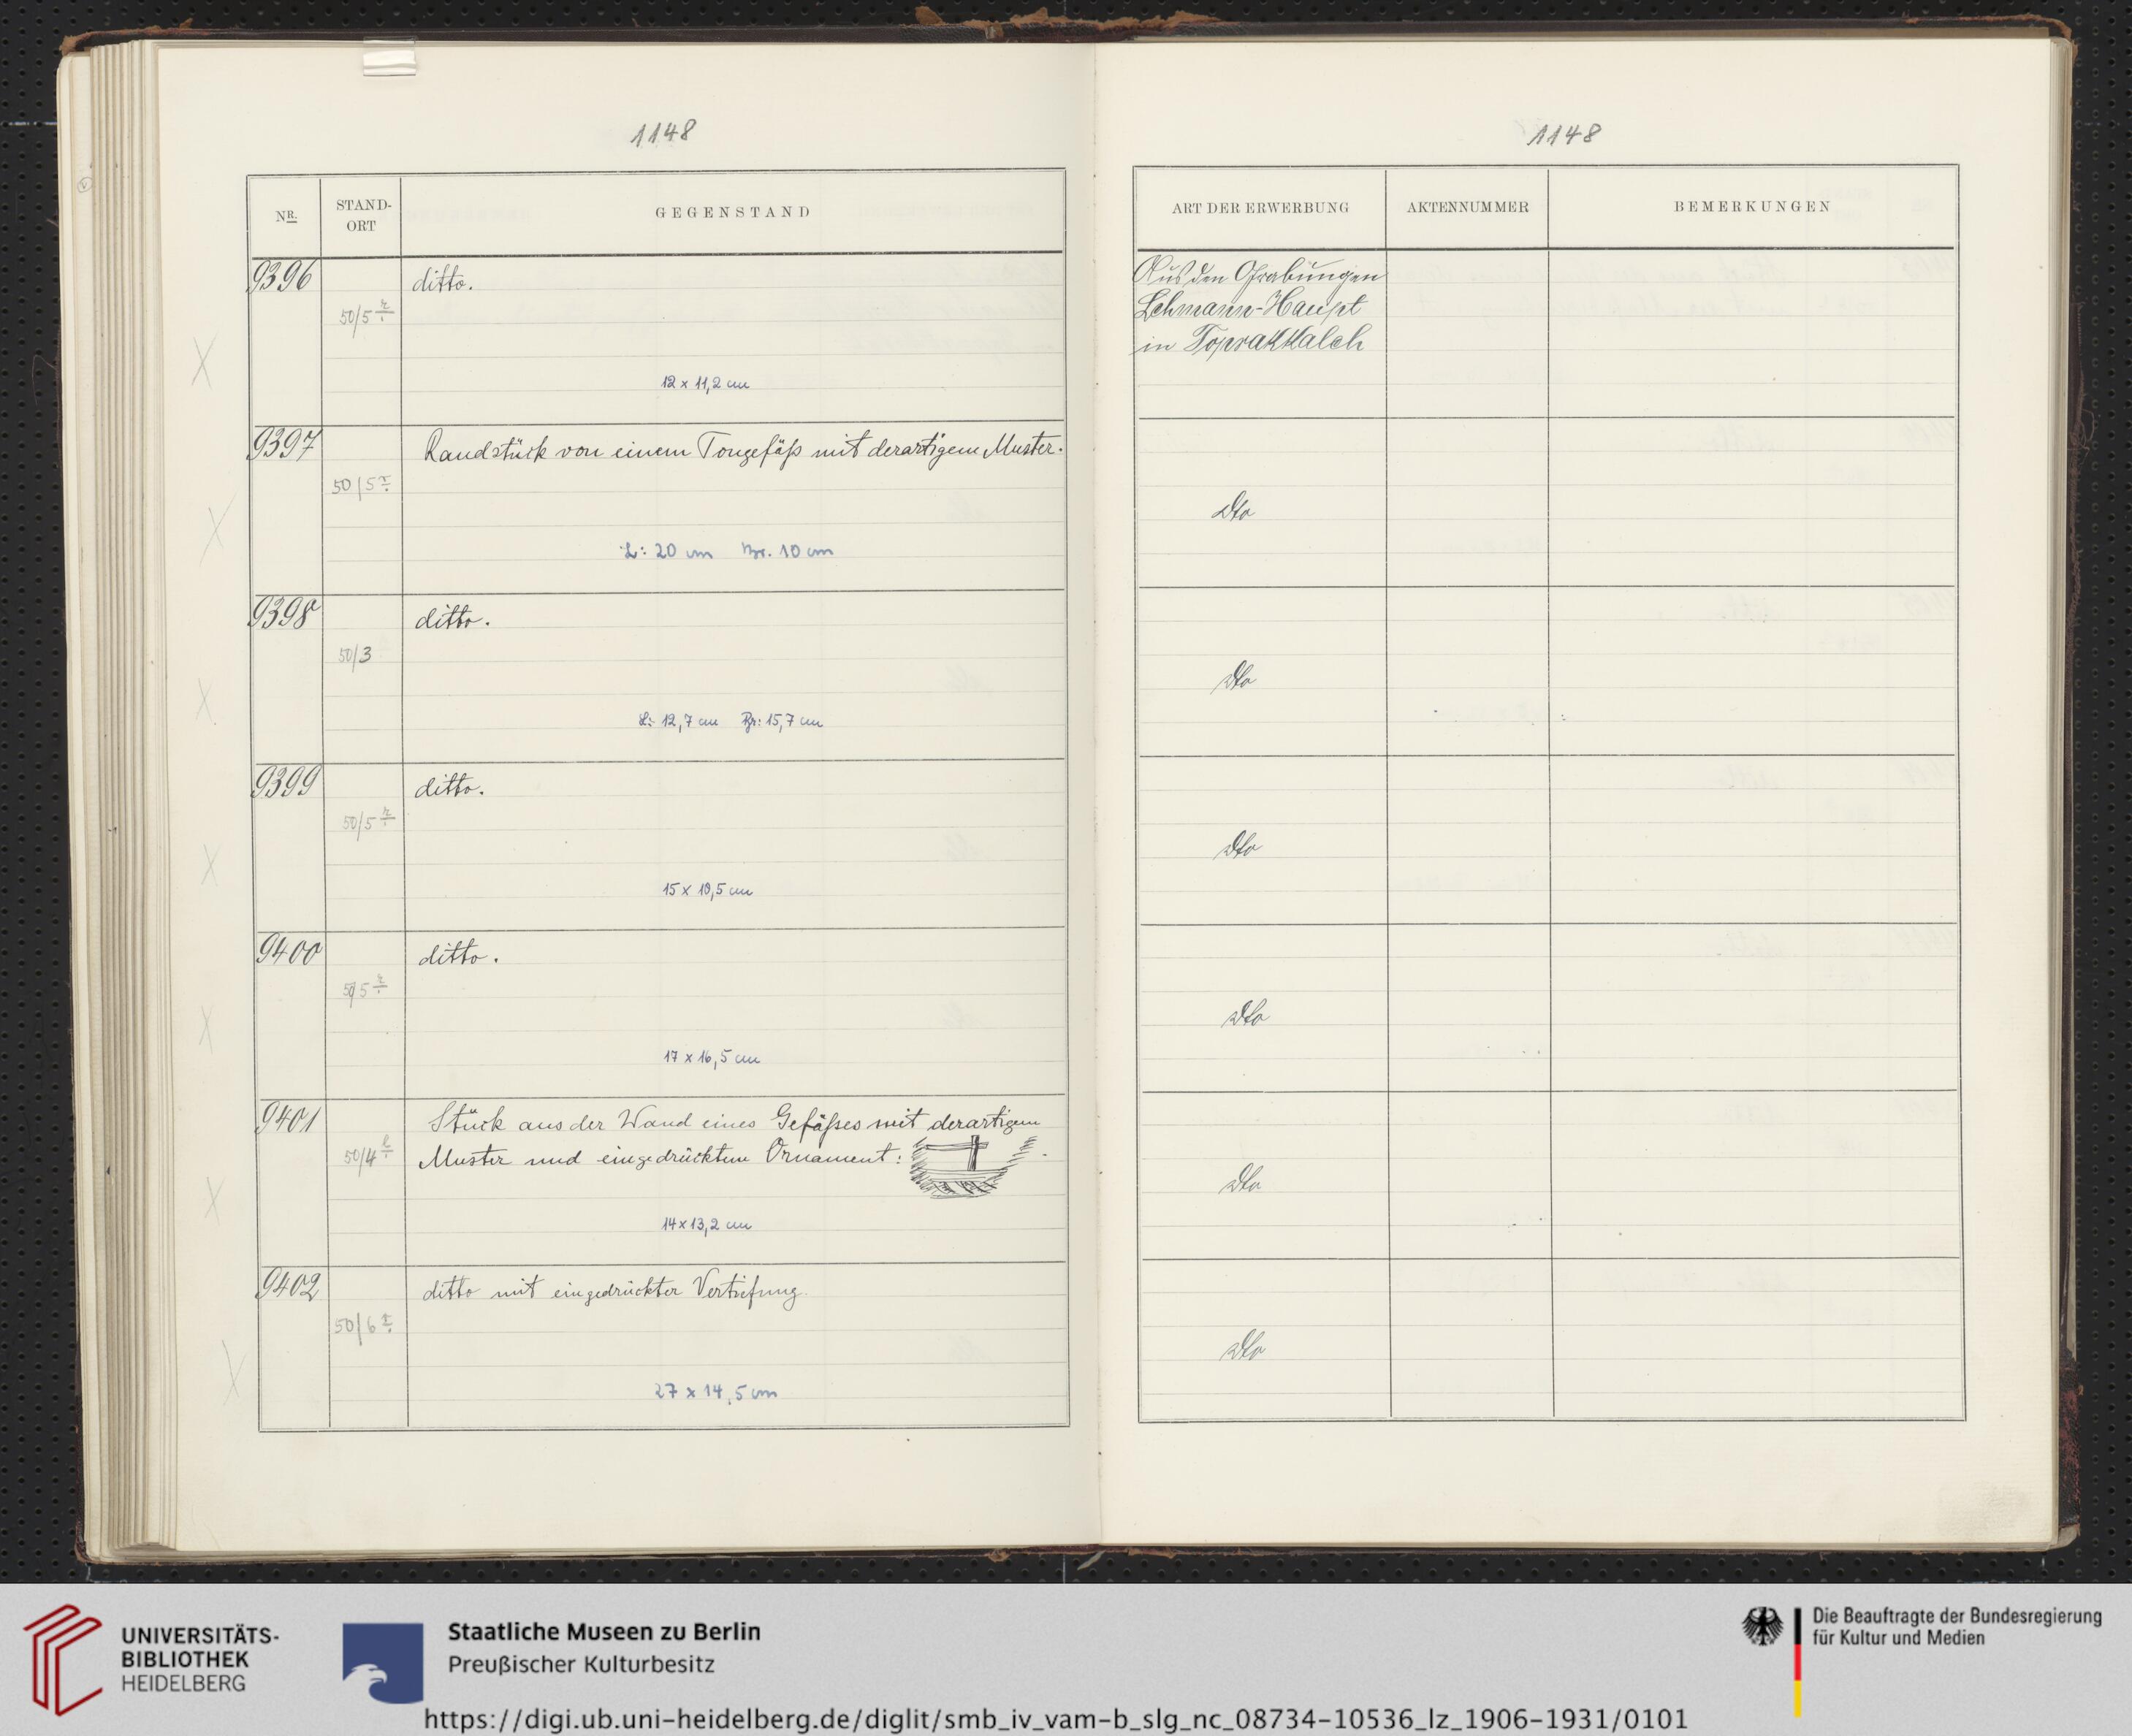 1148
NR.
STAND-
ORT
GEGENSTAND
9396
ditto.
50/5 r.
12 x 11,2 cm
9397
Randstück von einem Tongefäß mit derartigem Muster.
50/5 r.
L: 20 cm Br. 10 cm
9398
ditto.
50/3
L: 12,7 cm Br: 15,7 cm
9399
ditto.
50/5 r.
15 x 10,5 cm
9400
ditto.
50/5 r.
17 x 16,5 cm
9401
Stück aus der Wand eines Gefäßes mit derartigem
50/4
Muster und eingedrücktem Ornament:
14 x 13,2 cm
9402
ditto mit eingedrückter Vertiefung.
50/6 r.
27 x 14,5 cm
1148
ART DER ERWERBUNG
AKTENNUMMER
BEMERKUNGEN
Aus den Grabungen
Lehmann-Haupt
in Toprakkaleh
dto
dto
dto
dto
dto
dto
UNIVERSITÄTS-
BIBLIOTHEK
HEIDELBERG
Staatliche Museen zu Berlin
Preußischer Kulturbesitz
Die Beauftragte der Bundesregierung
für Kultur und Medien
https://digi.ub.uni-heidelberg.de/diglit/smb_iv_vam-b_slg_nc_08734-10536_lz_1906-1931/0101